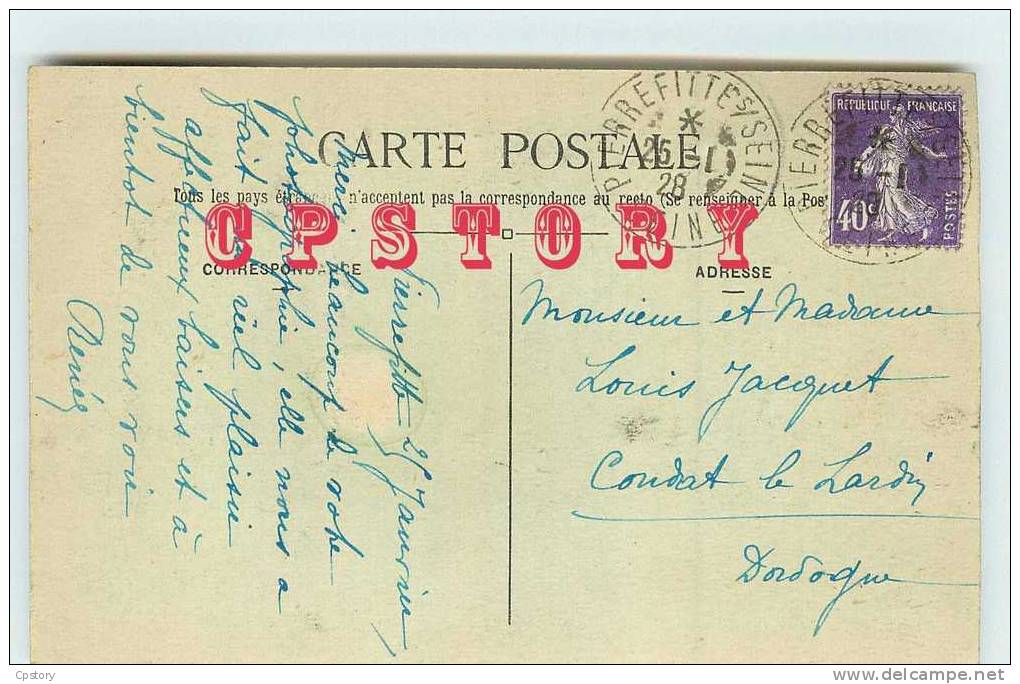 CARTE POSTALE
Tous les pays étrangers n'acceptent pas la correspondance au recto (Se renseigner à la Poste
CPSTORY
CORRESPONDANCE
ADRESSE
PIERREFITTE S/SEINE
*
25 -1
28
SEINE
PIERREFITTE
*
25 -1
REPUBLIQUE FRANÇAISE
40c
POSTES
Pierrefitte 25 Janvier
Merci beaucoup de votre
photographie, elle nous a
fait un réel plaisir
affectueux baisers et à
bientot de vous voir
Renée
Monsieur et Madame
Louis Jacquet
Condat le Lardin
Dordogne
Cpstory
delcampe.net